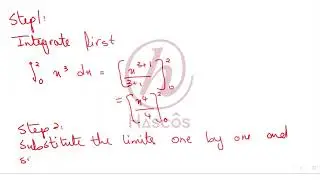 Step1:
Integrate first
∫₀² x³ dx = [x³⁺¹/3+1]₀²
= [x⁴/4]₀²
NASCÔS
Step 2:
Substitute the limits one by one and
s